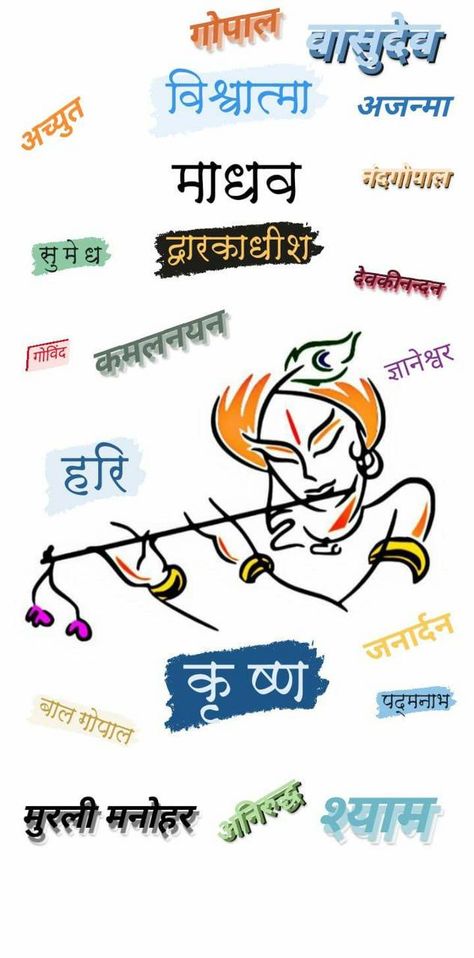 गोपाल
वासुदेव
विश्वात्मा
अजन्मा
अच्युत
माधव
नंदगोपाल
सुमेध
द्वारकाधीश
देवकीनन्दन
गोविंद
कमलनयन
ज्ञानेश्वर
हरि
जनार्दन
कृष्ण
पद्मनाभ
बाल गोपाल
मुरली मनोहर
अनिरुद्ध
श्याम